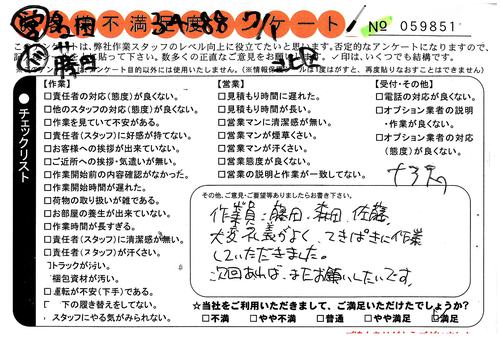 不満足度
アンケート
№ 059851
このアンケートは、弊社作業スタッフのレベル向上に役立てたいと思います。否定的なアンケートになりますので、
貼って下さい。数多くの正直なご意見をお願いします。✓印は、いくつでも結構です。
アンケート目的以外には使用いたしません。(※情報保護シールは1度はがすと、再度貼りなおすことはできません)
チェックリスト
【作業】
□責任者の対応(態度)が良くない。
□他のスタッフの対応(態度)が良くない。
□作業を見ていて不安がある。
□責任者(スタッフ)に好感が持てない。
□お客様への挨拶が出来ていない。
□ご近所への挨拶・気遣いが無い。
□作業開始前の内容確認がなかった。
□作業開始時間が遅れた。
□荷物の取り扱いが雑である。
□お部屋の養生が出来ていない。
□作業時間が長すぎる。
□責任者(スタッフ)に清潔感が無い。
□責任者(スタッフ)が汗くさい。
トラックが汚い。
梱包資材が汚い。
□運転が不安(下手)である。
下の履き替えをしてない。
スタッフにやる気がみられない。
【営業】
□見積もり時間に遅れた。
□見積もり時間が長い。
□営業マンに清潔感が無い。
□営業マンが煙草くさい。
□営業マンが汗くさい。
□営業態度が良くない。
□営業の説明と作業が一致してない。
【受付・その他】
□電話の対応が良くない。
□オプション業者の説明
・作業が良くない。
□オプション業者の対応
(態度)が良くない。
その他、ご意見・ご要望等ありましたらお書き下さい。
作業員:藤田、森田、佐藤
大変礼義がよく、てきぱきに作業
していただきました。
次回あれば、またお願いしたいです。
☆当社をご利用いただきまして、ご満足いただけたでしょうか?
□不満 □やや不満 □普通 □やや満足 ☑満足